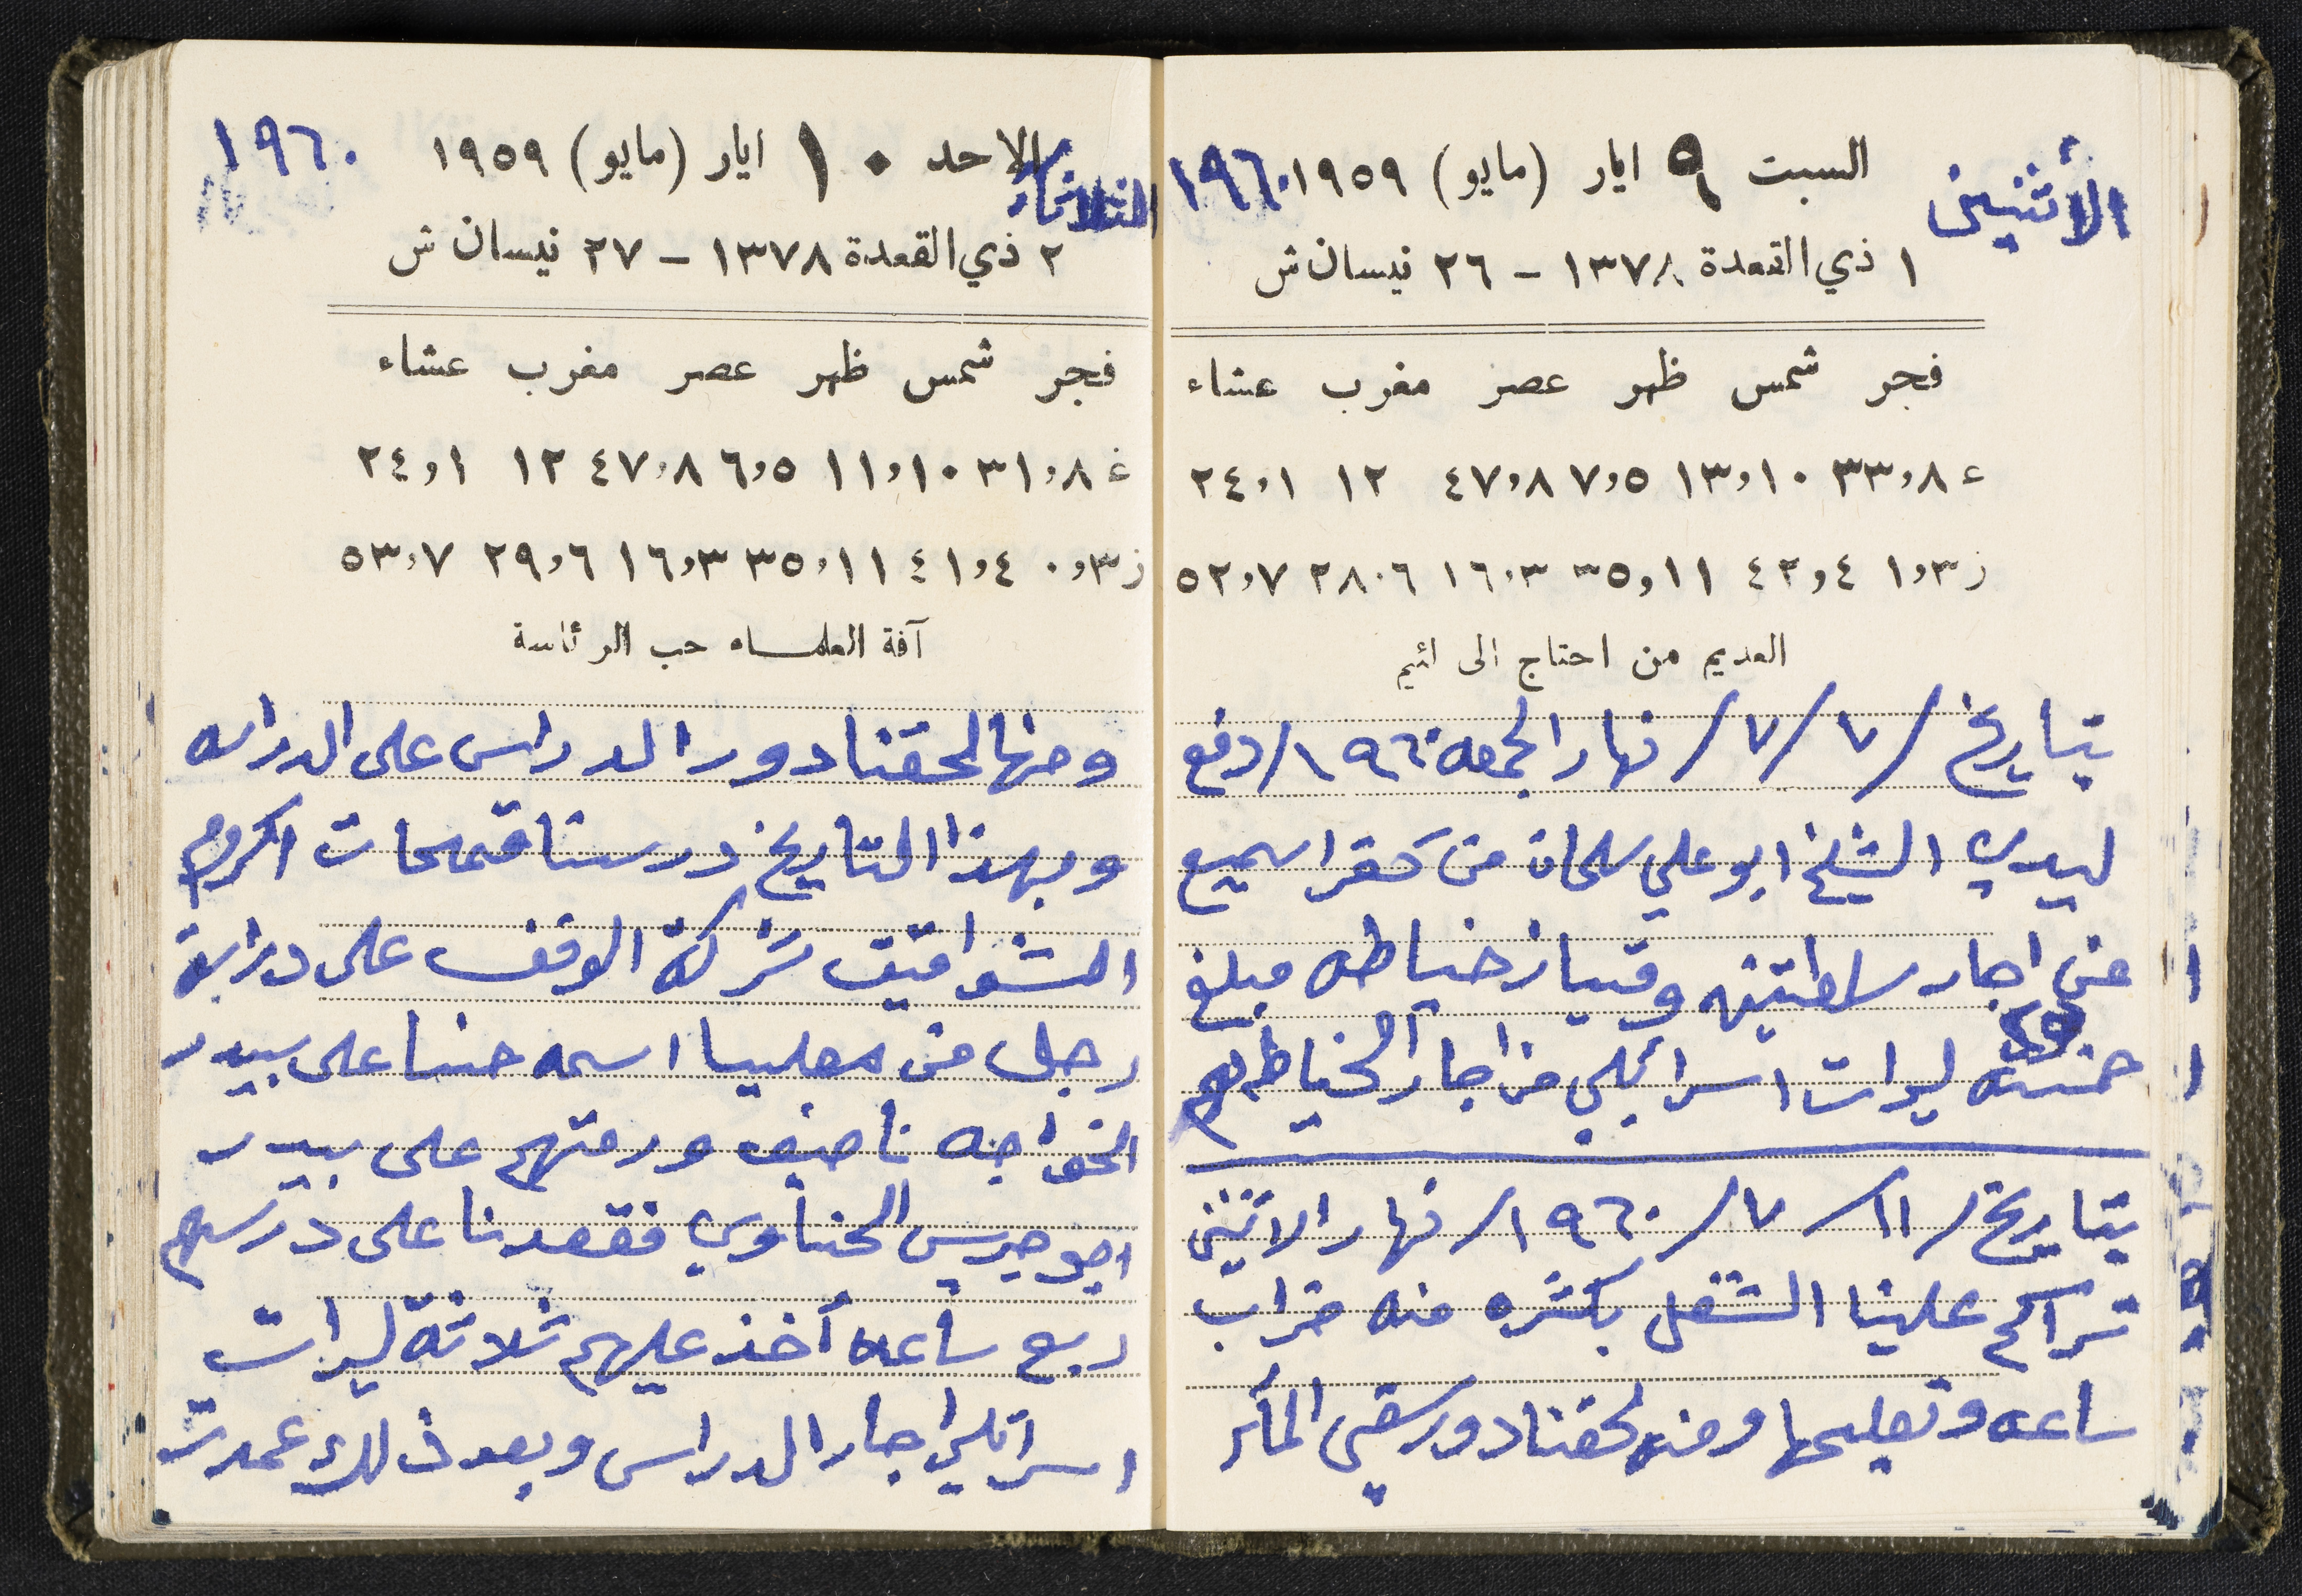 الأثنين
السبت ٩ ايار (مايو) ١٩٥٩ ١٩٦٠
١ ذي القعدة ١٣٧٨ – ٢٦ نيسان ش
فجر شمس ظهر عصر مغرب عشاء
ع ٣٣,٨ ١٣,١٠ ٧,٥ ٤٧,٨ ١٢ ٢٤,١
ز ١,٣ ٤٢,٤ ٣٥,١١ ١٦,٣ ٢٨,٦ ٥٢,٧
العديم من احتاج الى لئيم
بتاريخ /٧/٧/ نهار الجمعه ١٩٦٠/ دفع
ليدي الشيخ ابو علي سلمان من كفر اسميع
عن اجار خياطه مبلغ
خمسه ليرات اسرائيلي من اجار الخياطه
بتاريخ /١١/٧/١٩٦٠/ نهار الاثنين
تراكم علينا الشغل بكثره منه خراب
ساعه وتعليمها ومنه لحقنا دور سقي المأ
الثلاثاء
الاحد ١٠ ايار (مايو) ١٩٥٩ ١٩٦٠
٢ ذي القعدة ١٣٧٨ – ٢٧ نيسان ش
فجر شمس ظهر عصر مغرب عشاء
ع ٣١,٨ ١١,١٠ ٦,٥ ٤٧,٨ ١٢ ٢٤,١
ز ٠,٣ ٤١,٤ ٣٥,١١ ١٦,٣ ٢٩,٦ ٥٣,٧
آفة العلماء حب الرئاسة
ومنها لحقنا دور الدراس على الدراسه
وبهذا التاريخ درسنا قمحات اكروم
الشواقيف شركة الوقف على دراسة
رجل من معليا اسمه حنا على بيدر
الخواجه ناصيف ورمتهم على بيدر
ابو جريس الحناوي فقعدنا على درسهم
ربع ساعه أخذ عليهم ثلاثة ليرات
اسرائلي اجار الدراس وبعد ذلك عمدت